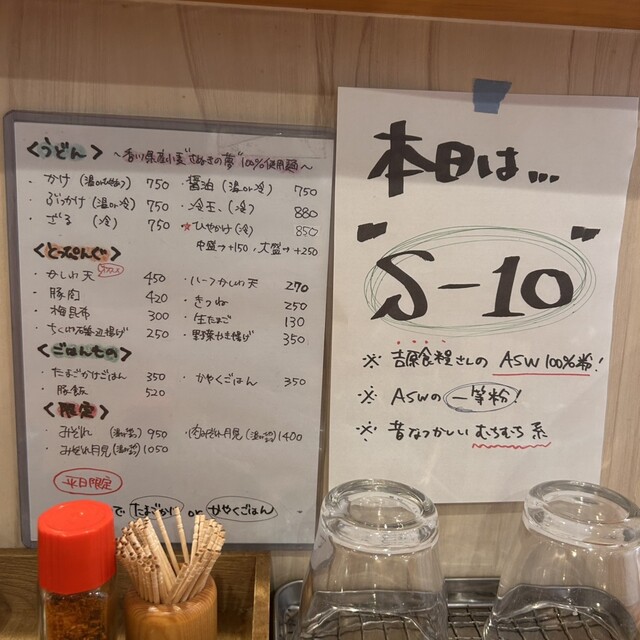 <うどん> ～香川県産小麦"さぬきの夢"100%使用麺～
・かけ (温or
750
・醤油 (温or冷) 750
・ぶっかけ (温or冷) 750
・冷玉、(冷) 880
・ざる (冷) 750
★ひやかけ (冷) 850
中盛→+150、大盛→+250
<とっぴんぐ>
・かしわ天 450
・ハーフかしわ天 270
・豚肉 420
・きつね 250
・梅昆布 300
・生たまご 130
・ちくわ磯辺揚げ 250
・野菜かき揚げ 350
<ごはんもの>
・たまごかけごはん 350
・かやくごはん 350
・豚飯 520
<限定>
・みぞれ 950
・肉みぞれ月見 1400
・みぞれ月見 1050
平日限定
で たまごかけ or かやくごはん
本日は...
"S-10"
※ 吉原食糧さんの ASW 100%粉!
※ ASWの 一等粉!
※ 昔なつかしい むちむち系